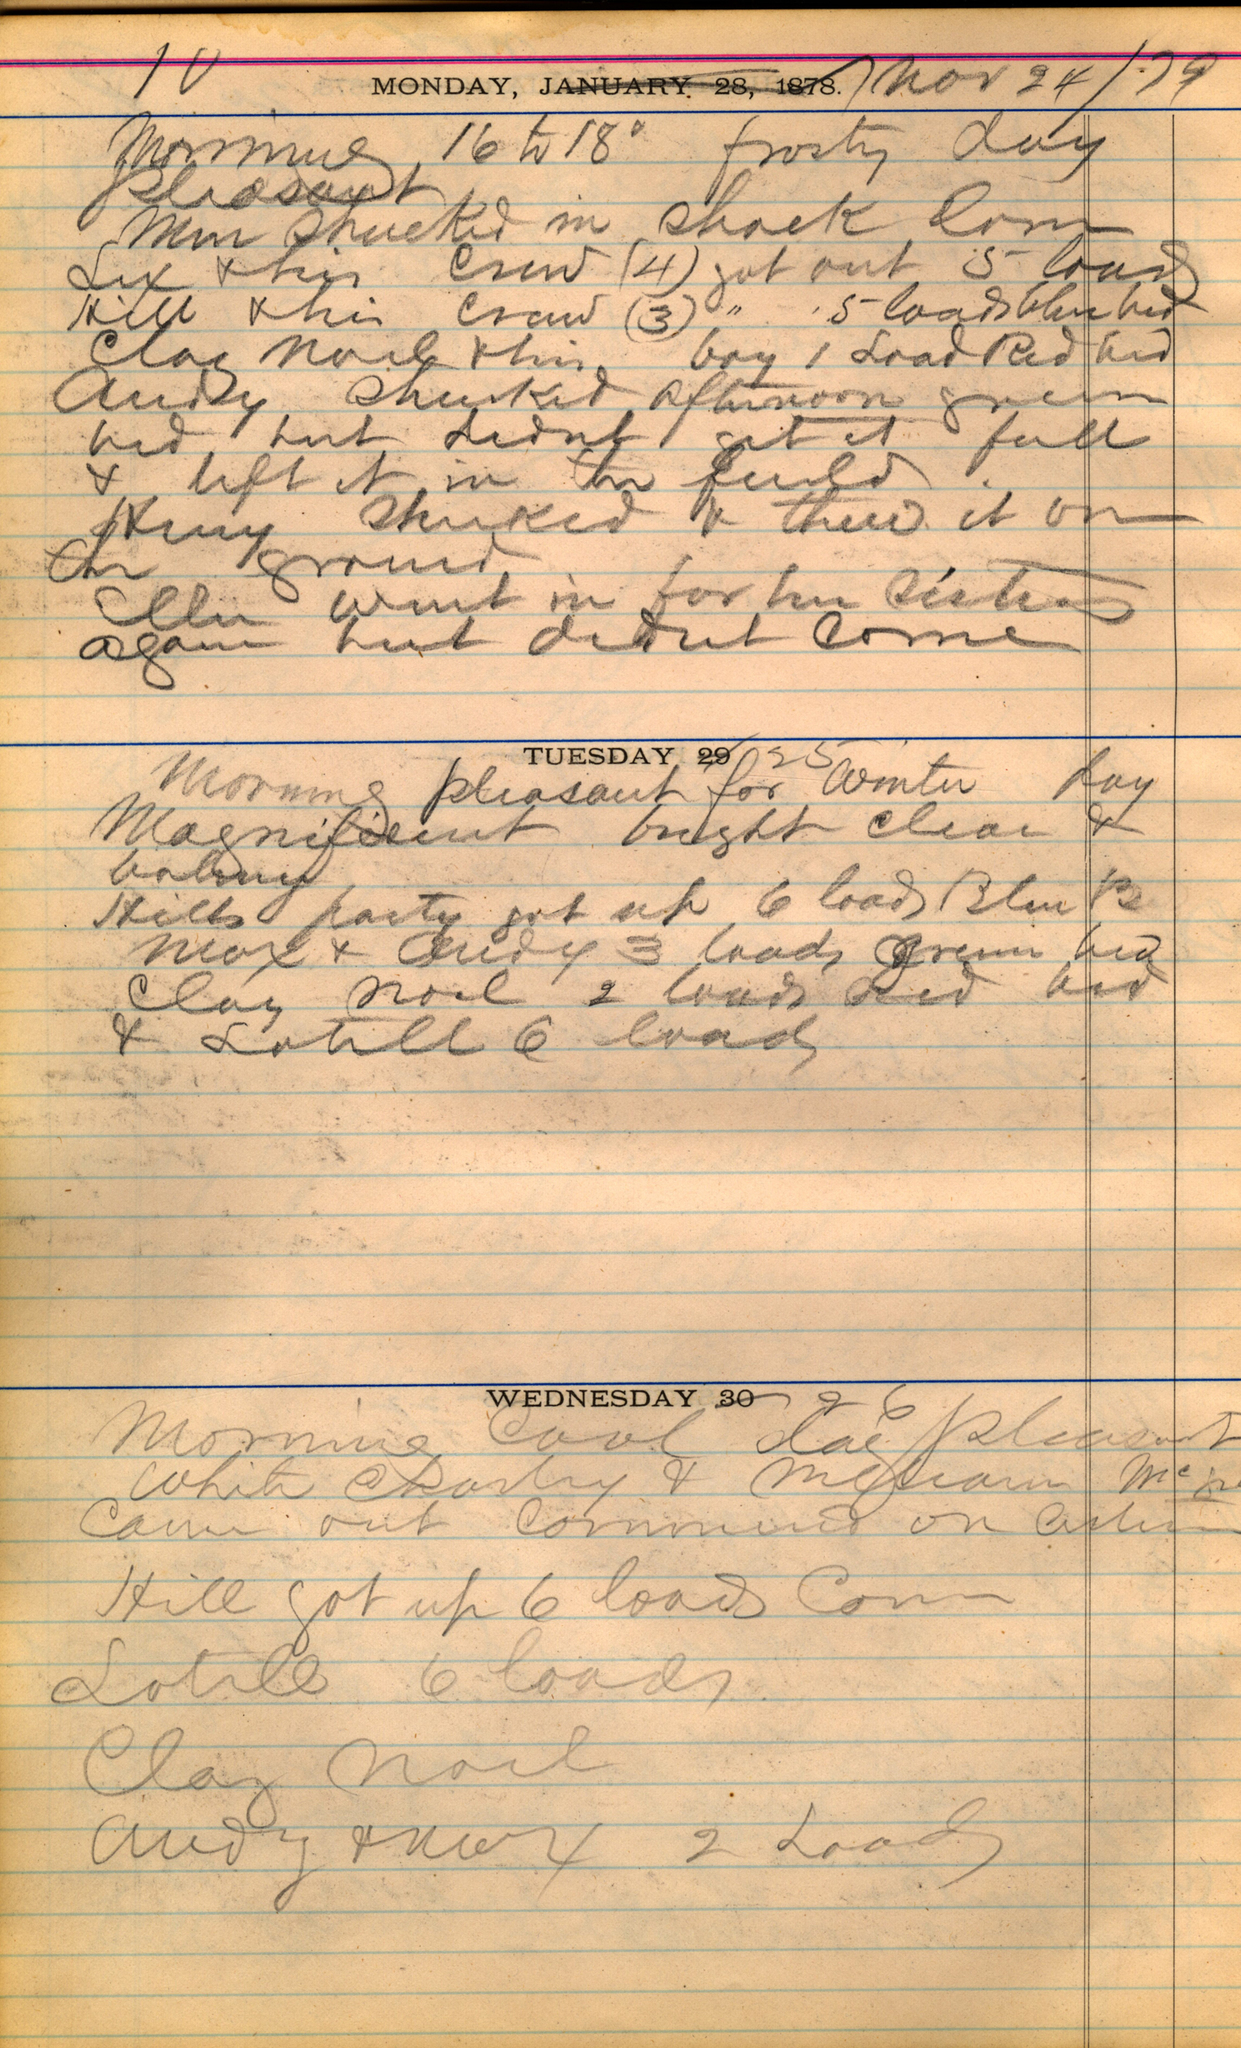 10
MONDAY, JANUARY 28, 1878. Nov 24/79
Morning 16 to 18° frosty day
pleasant
Men shucked in shock Corn
Lix & his Crew (4) got out 5 loads
Hill & his Crew (3) " 5 loads blue bed
Clay Noel & his boy 1 Load Red bed
Andy shucked afternoon green
bed but didnt get it full
& left it in the field
Henry shucked & threw it on
the ground
Ellen went in for her sister
again but didnt come
TUESDAY 29 25
Morning pleasant for Winter day
Magnificent bright clear &
balmy
Hills party got up 6 loads Blue B
Max & Andy 3 loads Green bed
Clay Noel 2 loads Red bed
& Lotill 6 loads
WEDNESDAY 30 26
Morning Cool day pleasant
White Charley &
Came out Commenced on
Hill got up 6 loads Corn
Lotill 6 loads
Clay Noel
Andy & Max 2 Loads